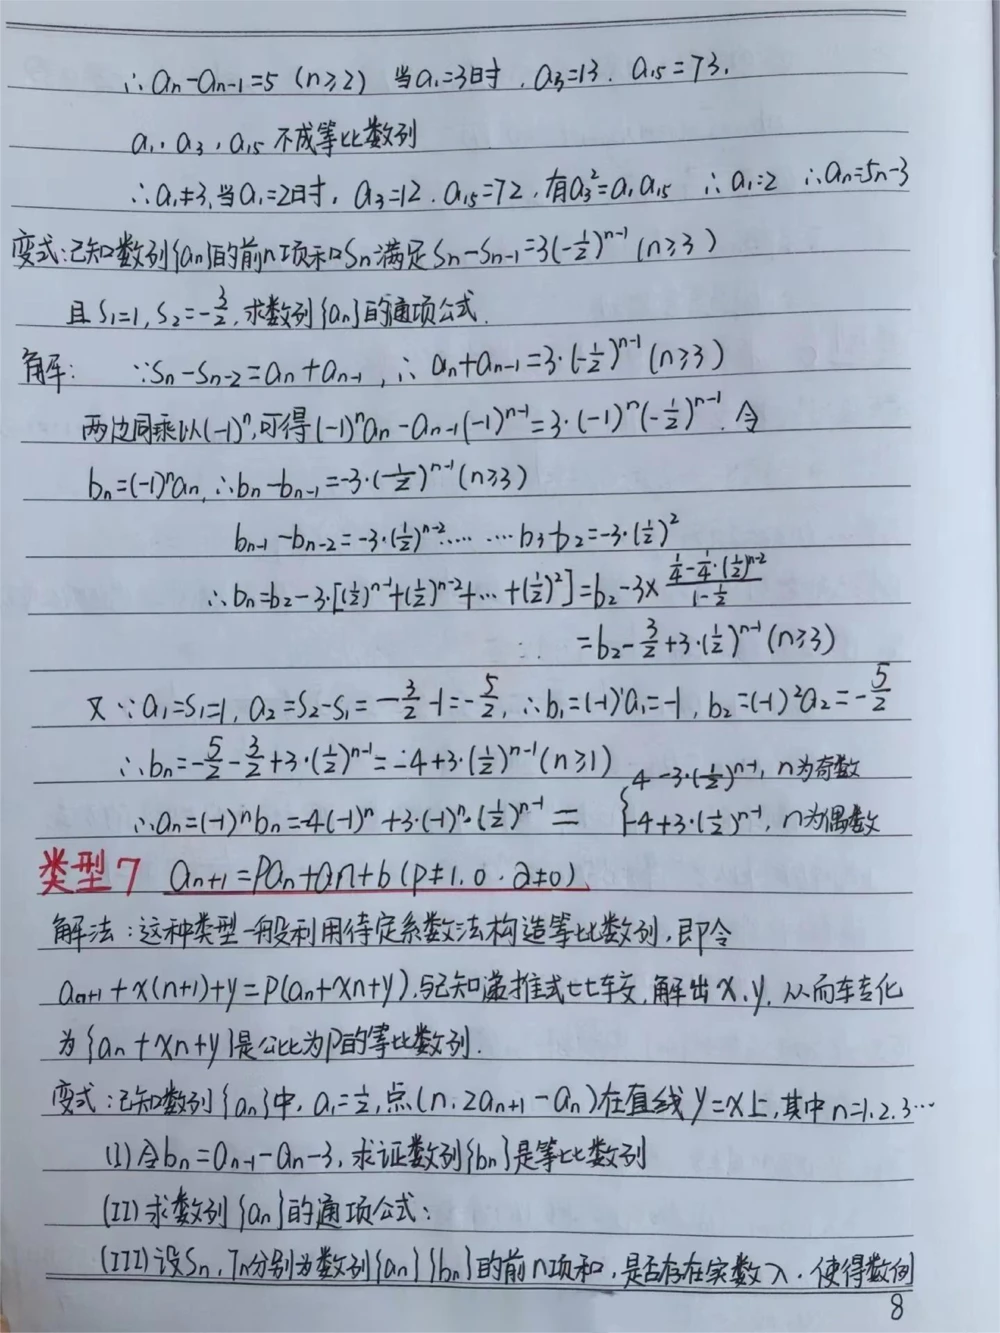 ∴an-an-1=5 (n≥2) 当a1=3时,a3=13,a15=73,
a1,a3,a15不成等比数列
∴a1≠3,当a1=2时,a3=12,a15=72,有a3²=a1a15 ∴a1=2 ∴an=5n-3
变式:已知数列{an}的前n项和Sn满足Sn-Sn-1=3(-1/2)^(n-1) (n≥3)
且S1=1,S2=-3/2,求数列{an}的通项公式.
解: ∵Sn-Sn-2=an+an-1,∴an+an-1=3·(-1/2)^(n-1) (n≥3)
两边同乘以(-1)^n,可得(-1)^n an-an-1(-1)^(n-1)=3·(-1)^n(-1/2)^(n-1).令
bn=(-1)^n an,∴bn-bn-1=-3·(1/2)^(n-1) (n≥3)
bn-1-bn-2=-3·(1/2)^(n-2)…… ……b3-b2=-3·(1/2)^2
∴bn=b2-3·[(1/2)^(n-1)+(1/2)^(n-2)+…+(1/2)^2]=b2-3×(1/4-1/4·(1/2)^(n-2))/(1-1/2)
=b2-3/2+3·(1/2)^(n-1) (n≥3)
又∵a1=S1=1,a2=S2-S1=-3/2-1=-5/2,∴b1=(-1)^1a1=-1,b2=(-1)^2a2=-5/2
∴bn=-5/2-3/2+3·(1/2)^(n-1)=-4+3·(1/2)^(n-1) (n≥1)
∴an=(-1)^n bn=-4(-1)^n+3·(-1)^n·(1/2)^(n-1)={4-3·(1/2)^(n-1),n为奇数
-4+3·(1/2)^(n-1),n为偶数
类型7 an+1=Pan+an+b(P≠1,0,a≠0)
解法:这种类型一般利用待定系数法构造等比数列,即令
an+1+x(n+1)+y=P(an+xn+y),与已知递推式比较,解出x,y,从而转化
为{an+xn+y}是公比为P的等比数列.
变式:已知数列{an}中,a1=1/2,点(n,2an+1-an)在直线y=x上,其中n=1,2,3…
(I)令bn=an-1-an-3,求证数列{bn}是等比数列
(II)求数列{an}的通项公式:
(III)设Sn,Tn分别为数列{an}{bn}的前n项和,是否存在实数λ,使得数例
8